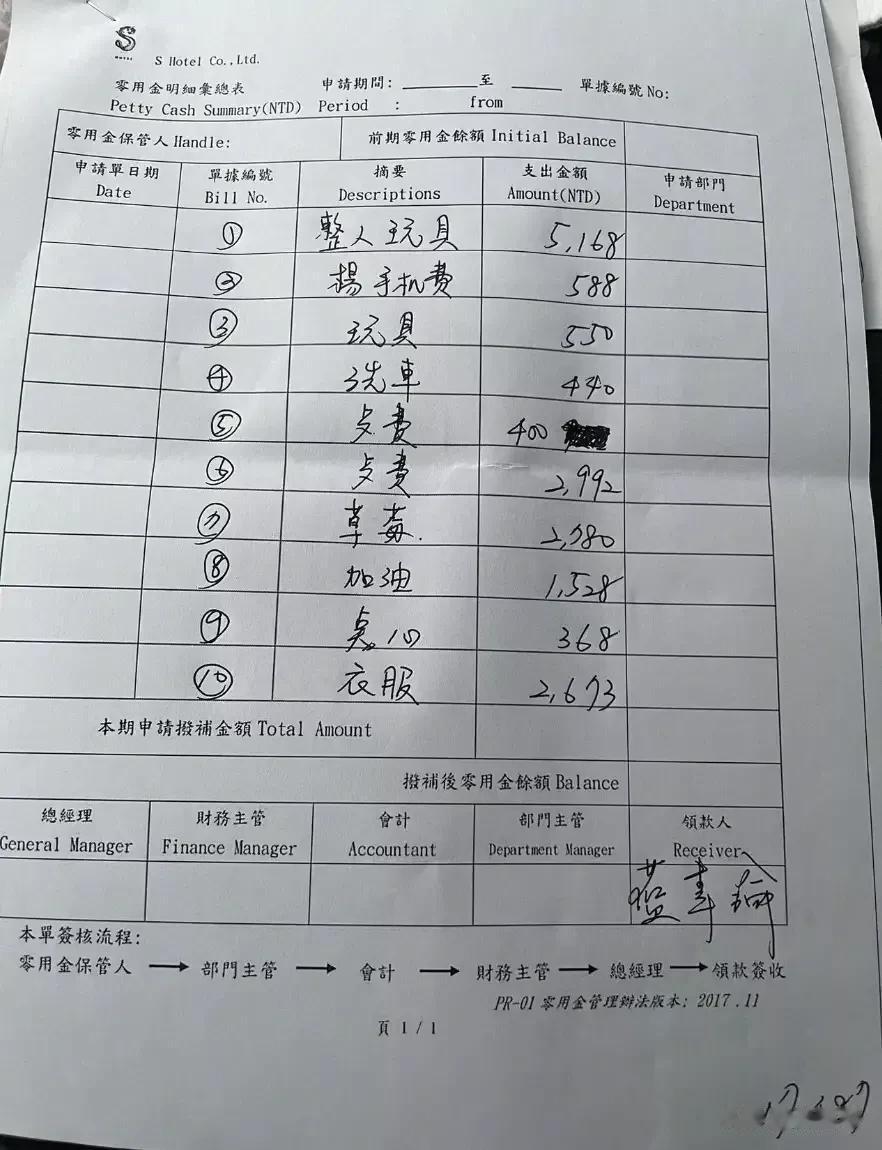 S Hotel Co.,Ltd.
零用金明細彙總表 申請期間: 至 單據編號 No:
Petty Cash Summary(NTD) Period : from
零用金保管人 Handle: 前期零用金餘額 Initial Balance
申請單日期 單據編號 摘要 支出金額 申請部門
Date Bill No. Descriptions Amount(NTD) Department
① 整人玩具 5,168
② 楊手机費 588
③ 玩具 550
④ 洗車 440
⑤ 歺費 400
⑥ 歺費 2,992
⑦ 草莓. 2,780
⑧ 加油 1,528
⑨ 點心 368
⑩ 衣服 2,673
本期申請撥補金額 Total Amount
撥補後零用金餘額 Balance
總經理 財務主管 會計 部門主管 領款人
General Manager Finance Manager Accountant Department Manager Receiver
本單簽核流程:
零用金保管人 → 部門主管 → 會計 → 財務主管 → 總經理 → 領款簽收
PR-01 零用金管理辦法版本: 2017.11
頁 1 / 1